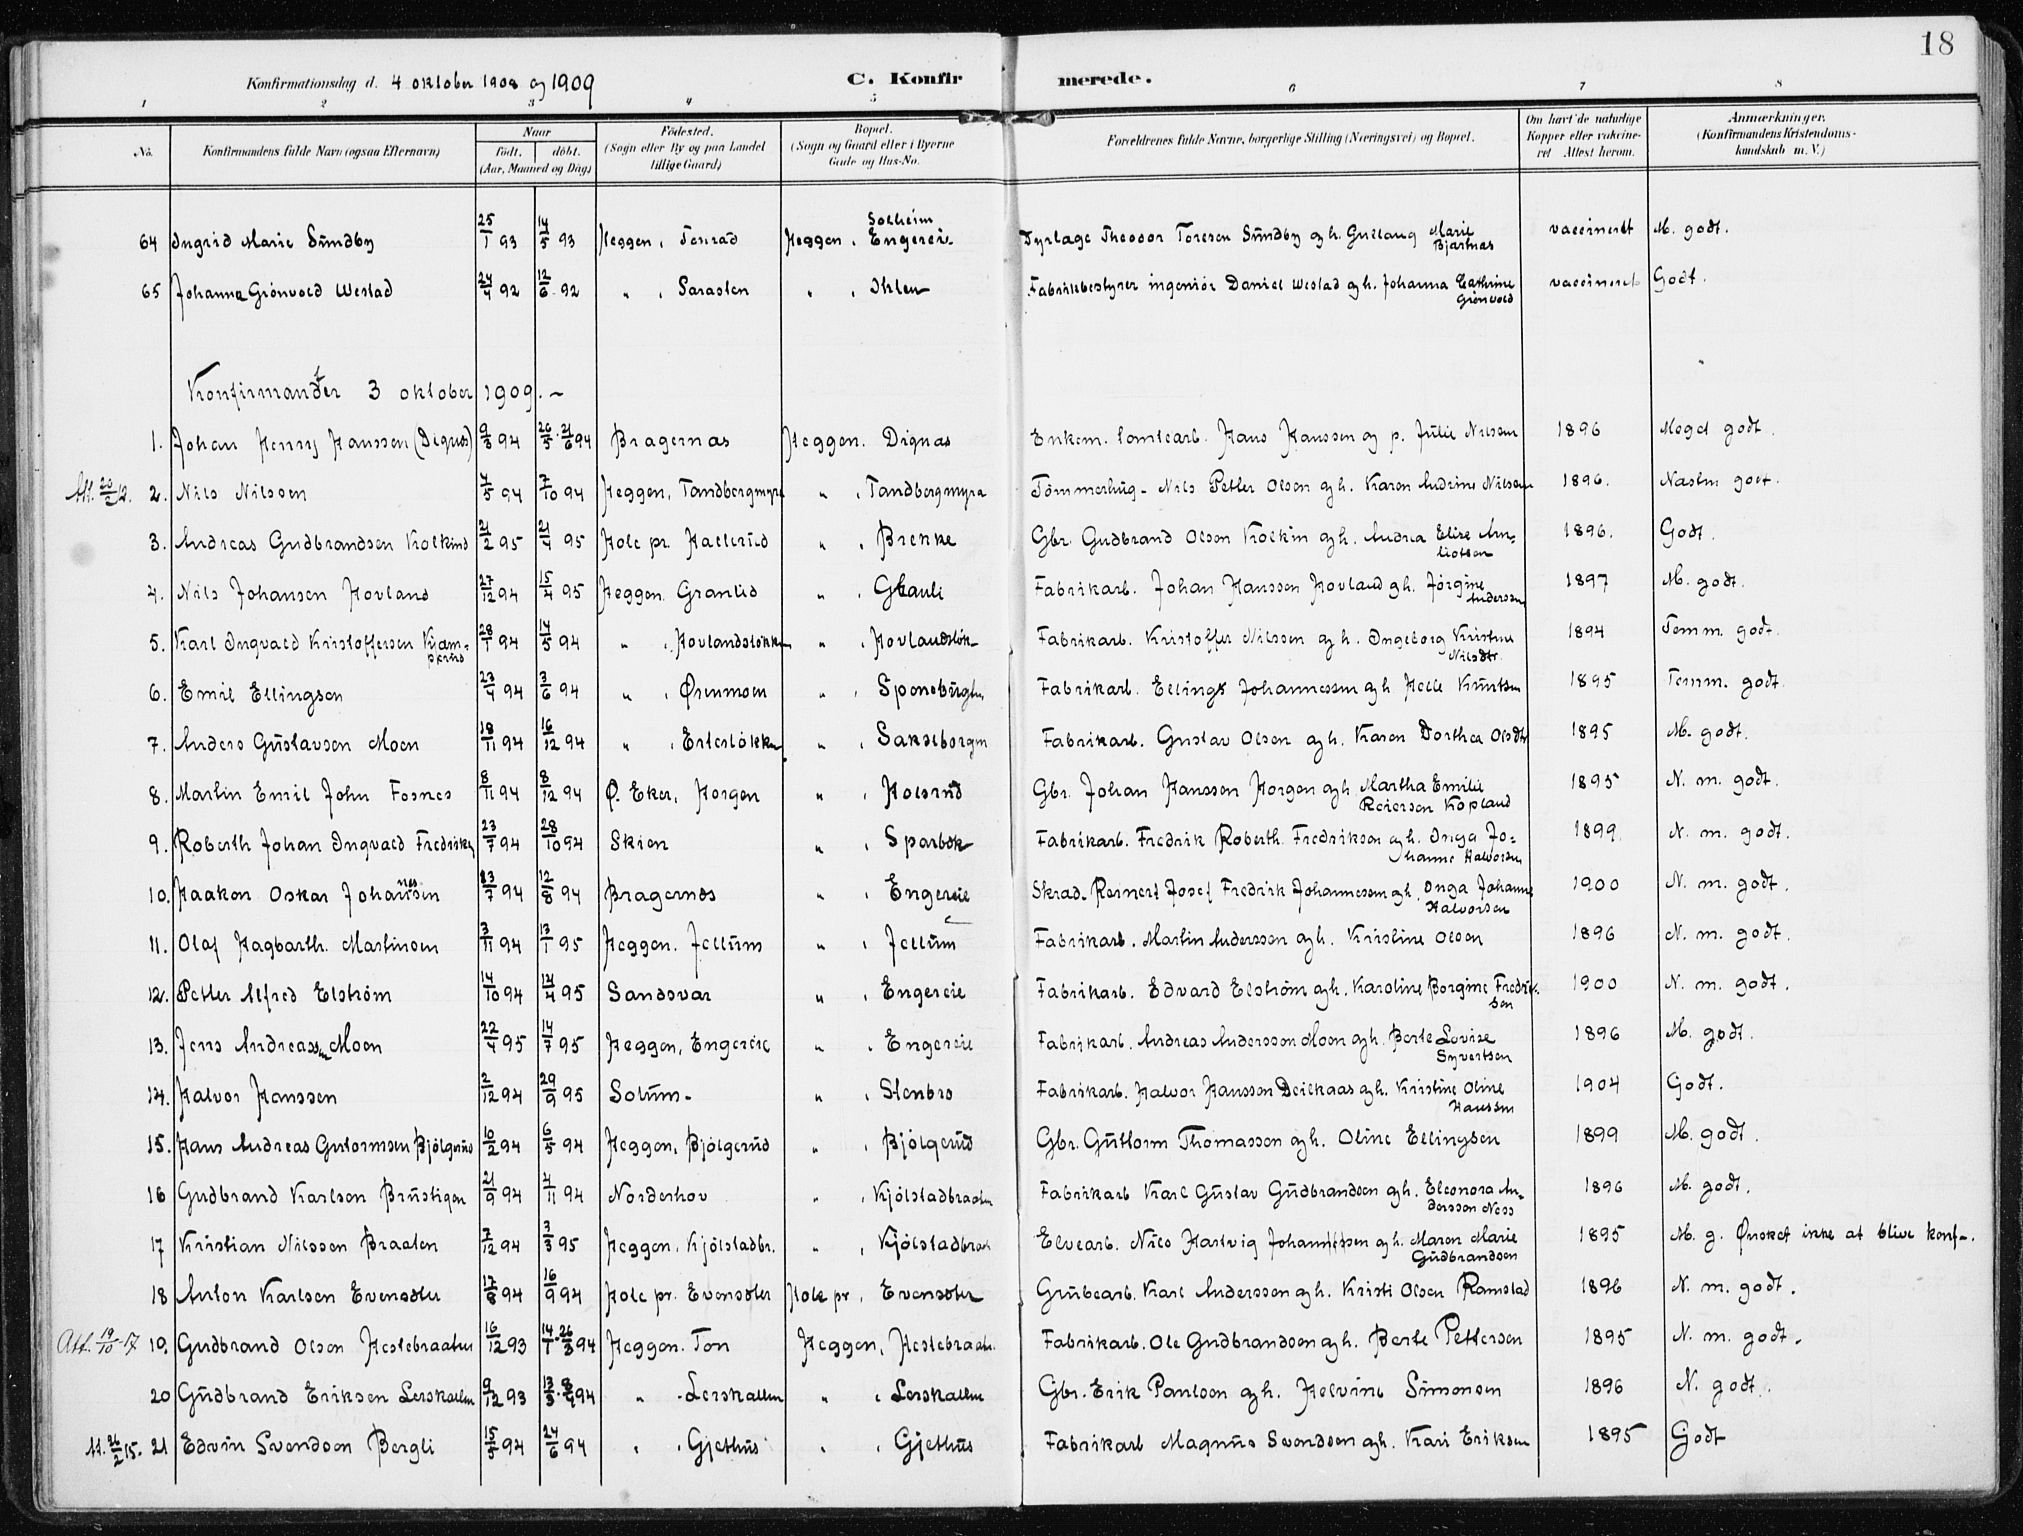 18
Konfirmationsdag d. 4 oktober 1908 og 1909 C. Konfirmerede.
1 2 3 4 5 6 7 8
No. Konfirmandens fulde Navn (ogsaa Efternavn) Naar født. døbt. (Aar, Maaned og Dag) Fødested. (Sogn eller By og paa Landet tillige Gaard) Bopæl. (Sogn og Gaard eller i Byerne Gade og Hus-No. Forældrenes fulde Navne, borgerlige Stilling (Næringsvei) og Bopæl. Om havt de naturlige Kopper eller vakcineret Attest herom. Anmærkninger. (Konfirmandens Kristendomskundskab m. V.)
64 Ingrid Marie Sundby 25/1 93 14/5 93 Heggen, Tenrad Heggen, Solheim Engereie Theodor Toresen Sundby og h. Gullaug Marie Bjartnæs vaccineret M. godt.
65 Johanna Grönvold Westad 24/4 92 12/6 92 " , Sarasten " , Ihlen Fabrikbestyrer ingeniör Daniel Westad og h. Johanna Cathrine Grönvold vaccineret Godt.
Konfirmander 3 oktober 1909. ~
1. Johan Henry Hanssen (Dignæs) 9/3 94 26/5 · 21/6 94 Bragernæs Heggen. Dignæs Enkem. Hans Hanssen og p. Julie Nilsen 1896 Meget godt.
Att. 20/2 12. 2. Nils Nilssen 4/5 94 7/10 94 Heggen, Tandbergmyra " , Tandbergmyra Tömmerhug- Nils Petter Olsen og h. Karen Andrine Nilsen 1896. Næsten godt.
3. Andreas Gudbrandsen Kolkind 21/2 95 21/4 95 Hole pr. Hallerud " , Brenne Gbr. Gudbrand Olsen Kolkin og h. Andrea Elise 1896. Godt.
4. Nils Johansen Hovland 27/12 94 15/4 95 Heggen Granlid " , Johan Hanssen Hovland og h. Jörgine Anderssen Fabrikarb. 1897 M. godt.
5. Karl Ingvald Kristoffersen 28/1 94 14/5 94 " , Hovlandslökken " , Hovlandslök- Fabrikarb. Kristoffer Nilssen og h. Ingeborg Kristine Nilsdtr. 1894 Temm. godt.
6. Emil Ellingsen 23/4 94 3/6 94 " , Örenmoen " , Fabrikarb. Ellings Johannessen og h. Helle Knutsen 1895 Temm. godt.
7. Anders Gustavsen Moen 18/11 94 16/12 94 " , Esterlökken " , Sakselborgen Fabrikarb. Gustav Olsen og h. Karen Dorthea Olsdtr 1895 M. godt.
8. Martin Emil John Fosnes 8/11 94 8/12 94 Ø. Eker, Horgen " , Holsrud Gbr. Johan Hanssen Horgen og h. Martha Emilie Reiersen Kopland 1895 N. m. godt.
9. Roberth Johan Ingvald Fredriksen 23/7 94 28/10 94 Skien " , Sparbok Fabrikarb. Fredrik Roberth Fredriksen og h. Inga Johanne Halvorsen 1899. N. m. godt.
10. Haakon Oskar Johannesen 23/7 94 12/8 94 Bragernæs " , Engereie Skræd. Reinert Josef Fredrik Johannessen og h. Inga Johanne Halvorsen 1900 N. m. godt.
11. Olaf Hagbarth. Martinsen 3/11 94 13/1 95 Heggen. Jellum " , Jellum Fabrikarb. Martin Anderssen og h. Kristine Olsen 1896 N. m. godt.
12. Petter Alfred Elström 14/10 94 14/4 95 Sandsvær " , Engereie Fabrikarb. Edvard Elström og h. Karoline Borgine Fredriksen 1900 N. m. godt.
13. Jens Andreassen Moen 22/4 95 14/7 95 Heggen, Engereie " , Engereie Fabrikarb. Andreas Anderssen Moen og h. Berte Lovise Syvertsen 1896 M. godt.
14. Halvor Hanssen 2/12 94 29/9 95 Solum- " , Stenbro Fabrikarb. Halvor Hanssen Deilkaas og h. Kristine Oline Hanssen 1904 Godt.
15. Hans Andreas Gutormsen Bjölgerud 10/2 94 6/5 94 Heggen, Bjölgerud " , Bjölgerud Gbr. Guttorm Thomassen og h. Oline Ellingsen 1899 M. godt.
16 Gudbrand Karlsen Brustigen 21/9 94 4/11 94 Norderhov " , Kjölstadbraaten Fabrikarb Karl Gustav Gudbrandsen og h. Eleonora Anderssen Ness 1896 M. godt.
17 Kristian Nilssen Braaten 7/12 94 3/3 95 Heggen, Kjölstadbr. " , Kjölstadbraat Elvearb. Nils Hartvig Johannessen og h. Maren Marie Gudbrandsen 1895 M. g. Ønsket ikke at blive konf-.
18 Anton Karlsen Evensdter 17/8 94 16/9 94 Hole pr. Evensdter Hole pr, Evensdter Grubearb. Karl Anderssen og h. Kristi Olsen Ramstad 1896 N. m. godt.
Att. 19/10-17 19. Gudbrand Olsen Hestebraaten 16/12 93 14/1 · 26/3 94 Heggen. Ton Heggen, Hestebraaten Fabrikarb. Ole Gudbrandsen og h. Berte Pettersen 1895 N. m. godt.
20 Gudbrand Eriksen Lerskallen 9/12 93 13/3 94 " Lerskallen " , Lerskallen Gbr. Erik Paulsen og h. Helvine Simonsen 1896 N. godt.
At. 26/2 15. 21 Edvin Svendsen Bergli 15/5 94 24/6 94 " , Gjethus " , Gjethus Fabrikarb Magnus Svendsen og h. Kari Eriksen 1895 Godt